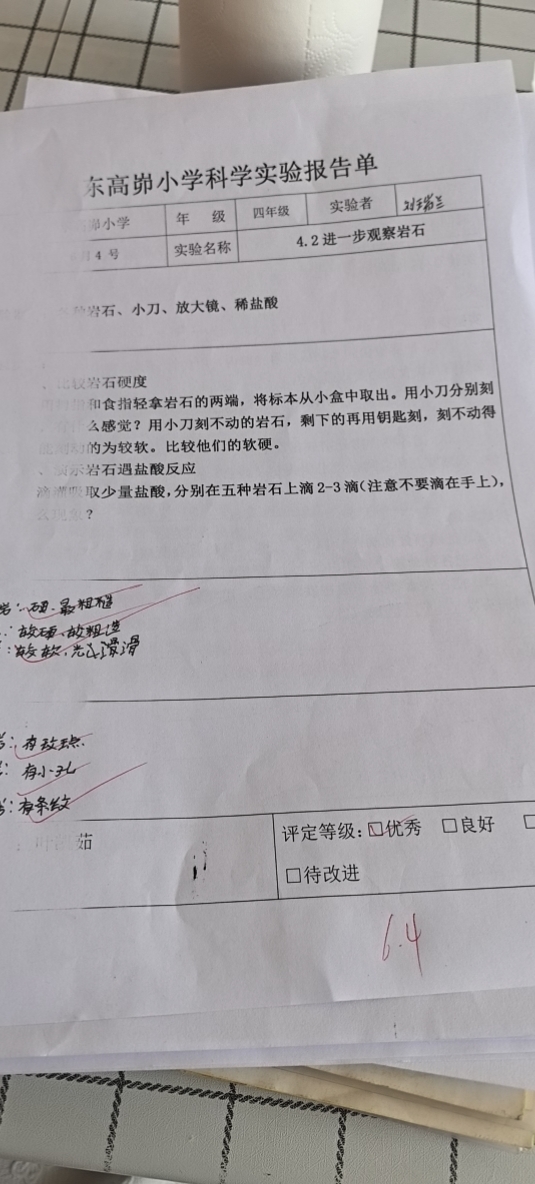 东高峁小学科学实验报告单
峁小学 年 级 四年级 实验者
月4号 实验名称 4.2进一步观察岩石
岩石、小刀、放大镜、稀盐酸
、比较岩石硬度
和食指轻拿岩石的两端，将标本从小盒中取出。用小刀分别刻
么感觉？用小刀刻不动的岩石，剩下的再用钥匙刻，刻不动得
的为较软。比较他们的软硬。
岩石遇盐酸反应
吸取少量盐酸，分别在五种岩石上滴2-3滴(注意不要滴在手上)，
？
岩：硬、最粗糙
：较硬、较粗糙
：较软、光滑
：有斑点
：有小孔
：有条纹
茹
评定等级：☐优秀 ☐良好 ☐
☐待改进
6.4